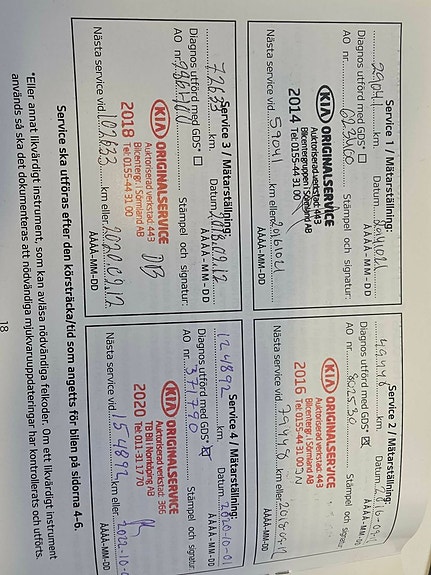 Service 1 / Mätarställning:
29041 km Datum 20141021
ÅÅÅÅ-MM-DD
Diagnos utförd med GDS* ☐
AO nr. Stämpel och signatur:
KIA ORIGINALSERVICE
Auktoriserad verkstad: 443
Bilcentergruppen i Sörmland AB
2014 Tel: 0155-44 31 00
Nästa service vid 59041 km eller 20161021
ÅÅÅÅ-MM-DD
Service 2 / Mätarställning:
49448 km Datum
ÅÅÅÅ-MM-DD
Diagnos utförd med GDS* ☒
AO nr. Stämpel och signatur
KIA ORIGINALSERVICE
Auktoriserad verkstad: 443
Bilcenterg i Sörmland AB
2016 Tel: 0155-44 31 00
Nästa service vid 79448 km eller
ÅÅÅÅ-MM-DD
Service 3 / Mätarställning:
72633 km Datum 2018.09.12
ÅÅÅÅ-MM-DD
Diagnos utförd med GDS* ☐
AO nr. Stämpel och signatur:
KIA ORIGINALSERVICE
Auktoriserad verkstad: 443
Bilcentergr. i Sörmland AB
2018 Tel: 0155-44 31 00
Nästa service vid 102633 km eller 2020.09.12
ÅÅÅÅ-MM-DD
Service 4 / Mätarställning:
124892 km Datum 2020-10-01
ÅÅÅÅ-MM-DD
Diagnos utförd med GDS* ☒
AO nr. 371790 Stämpel och signatur:
KIA ORIGINALSERVICE
Auktoriserad verkstad: 366
TB Bil i Norrköping AB
2020 Tel: 011-31 17 70
Nästa service vid 154892 km eller
ÅÅÅÅ-MM-DD
Service ska utföras efter den körsträcka/tid som angetts för bilen på sidorna 4-6.
*Eller annat likvärdigt instrument, som kan avläsa nödvändiga felkoder. Om ett likvärdigt instrument
används så ska det dokumenteras att nödvändiga mjukvaruuppdateringar har kontrollerats och utförts.
18